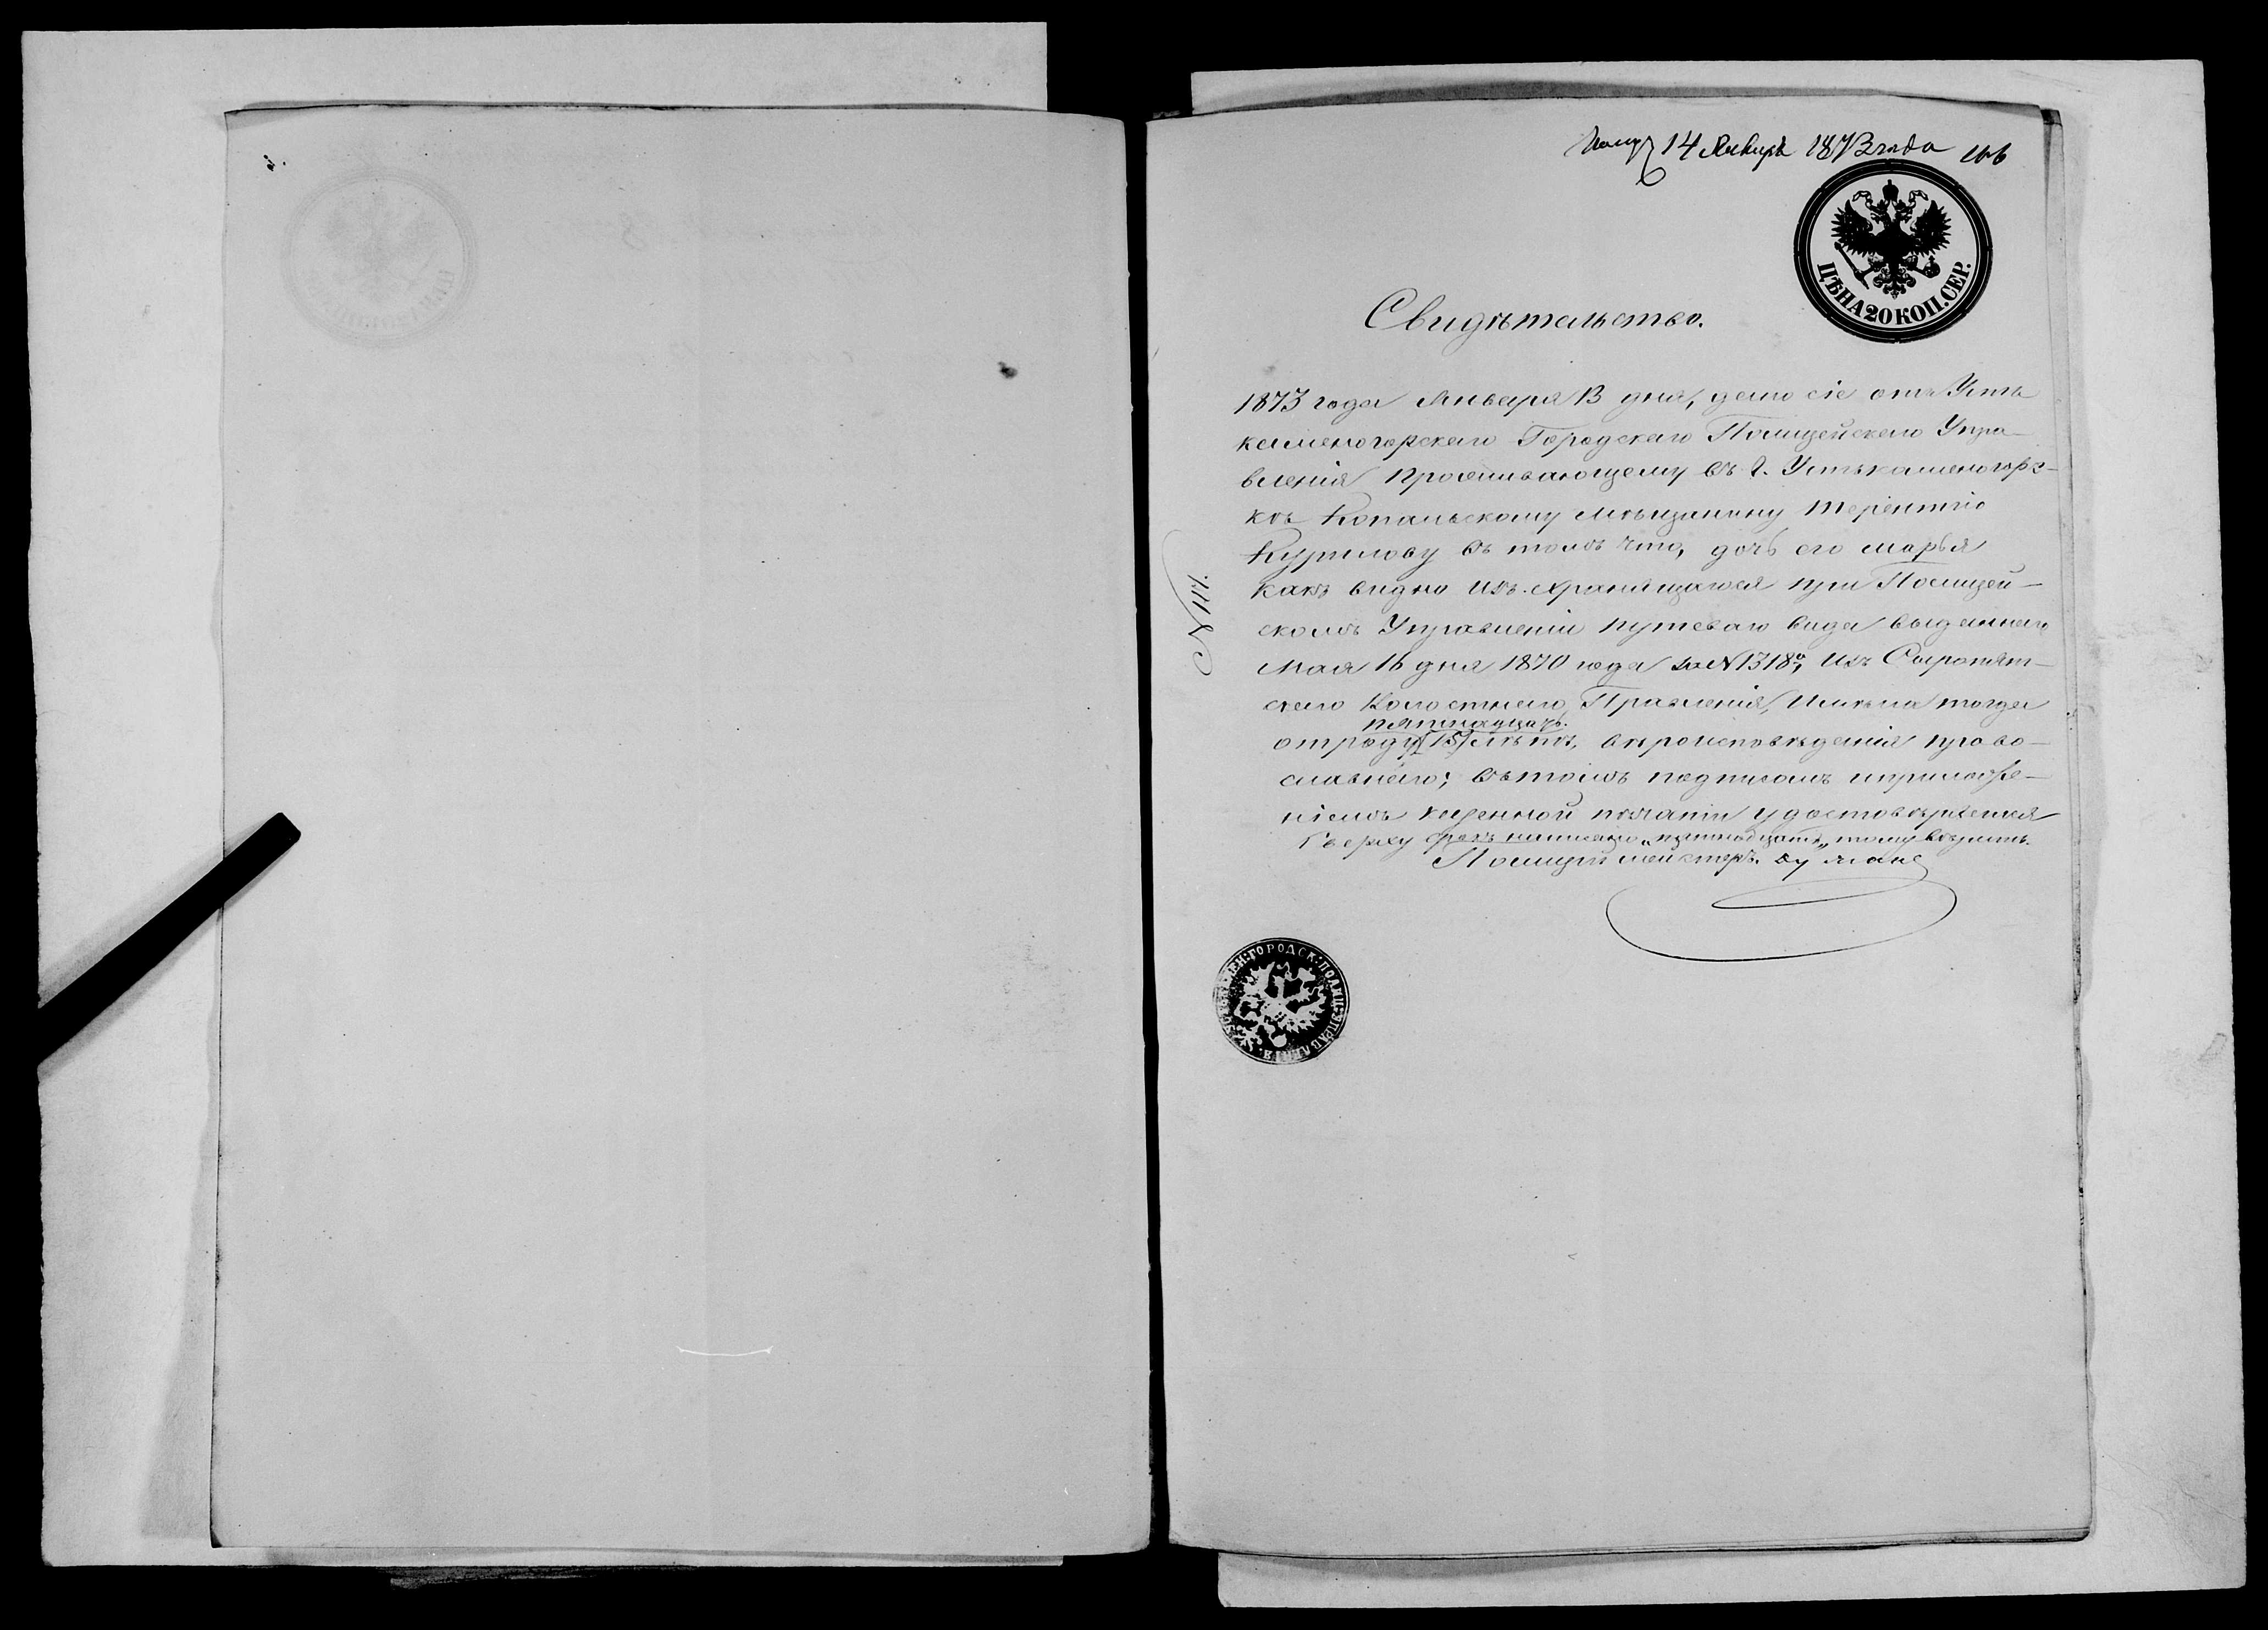 Получ 14 Января 1873 года
ЦѢНА 20 КОП. СЕР.
Свидѣтельство.
1873 года Января 13 дня, дано сіе отъ Усть
каменогорскаго Городскаго Полицейскаго Упра-
вленія проживающему въ г. Устькаменогорс-
кѣ Копальскому мѣщанину Терентію
Курилову въ томъ что, дочь его Марья
какъ видно изъ хранящагося при Полицей-
скомъ Управленіи путеваго вида выданнаго
Мая 16 дня 1870 года за № 1318, изъ
скаго Волостнаго Правленія, имѣла тогда
пятнадцать
отроду (15) лѣтъ, вѣроисповѣданія право-
славнаго; въ томъ подписомъ и приложе-
ніемъ казенной печати удостовѣряется
Сверху строкъ написано „пятнадцать„ тому вѣрить.
Полиціймейстеръ.
ГОРОДСК. ПОЛИЦ. УПРАВЛЕНІЯ